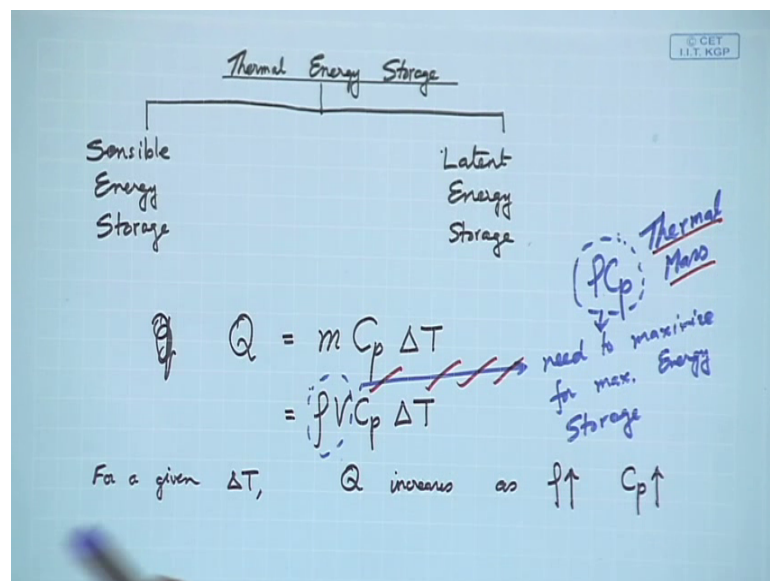 © CET
I.I.T. KGP
Thermal Energy Storage
Sensible
Energy
Storage
Latent
Energy
Storage
Thermal
Mass
(ρCp)
need to maximize
for max. Energy
Storage
Q = m Cp ΔT
= ρV Cp ΔT
For a given ΔT, Q increases as ρ↑ Cp↑